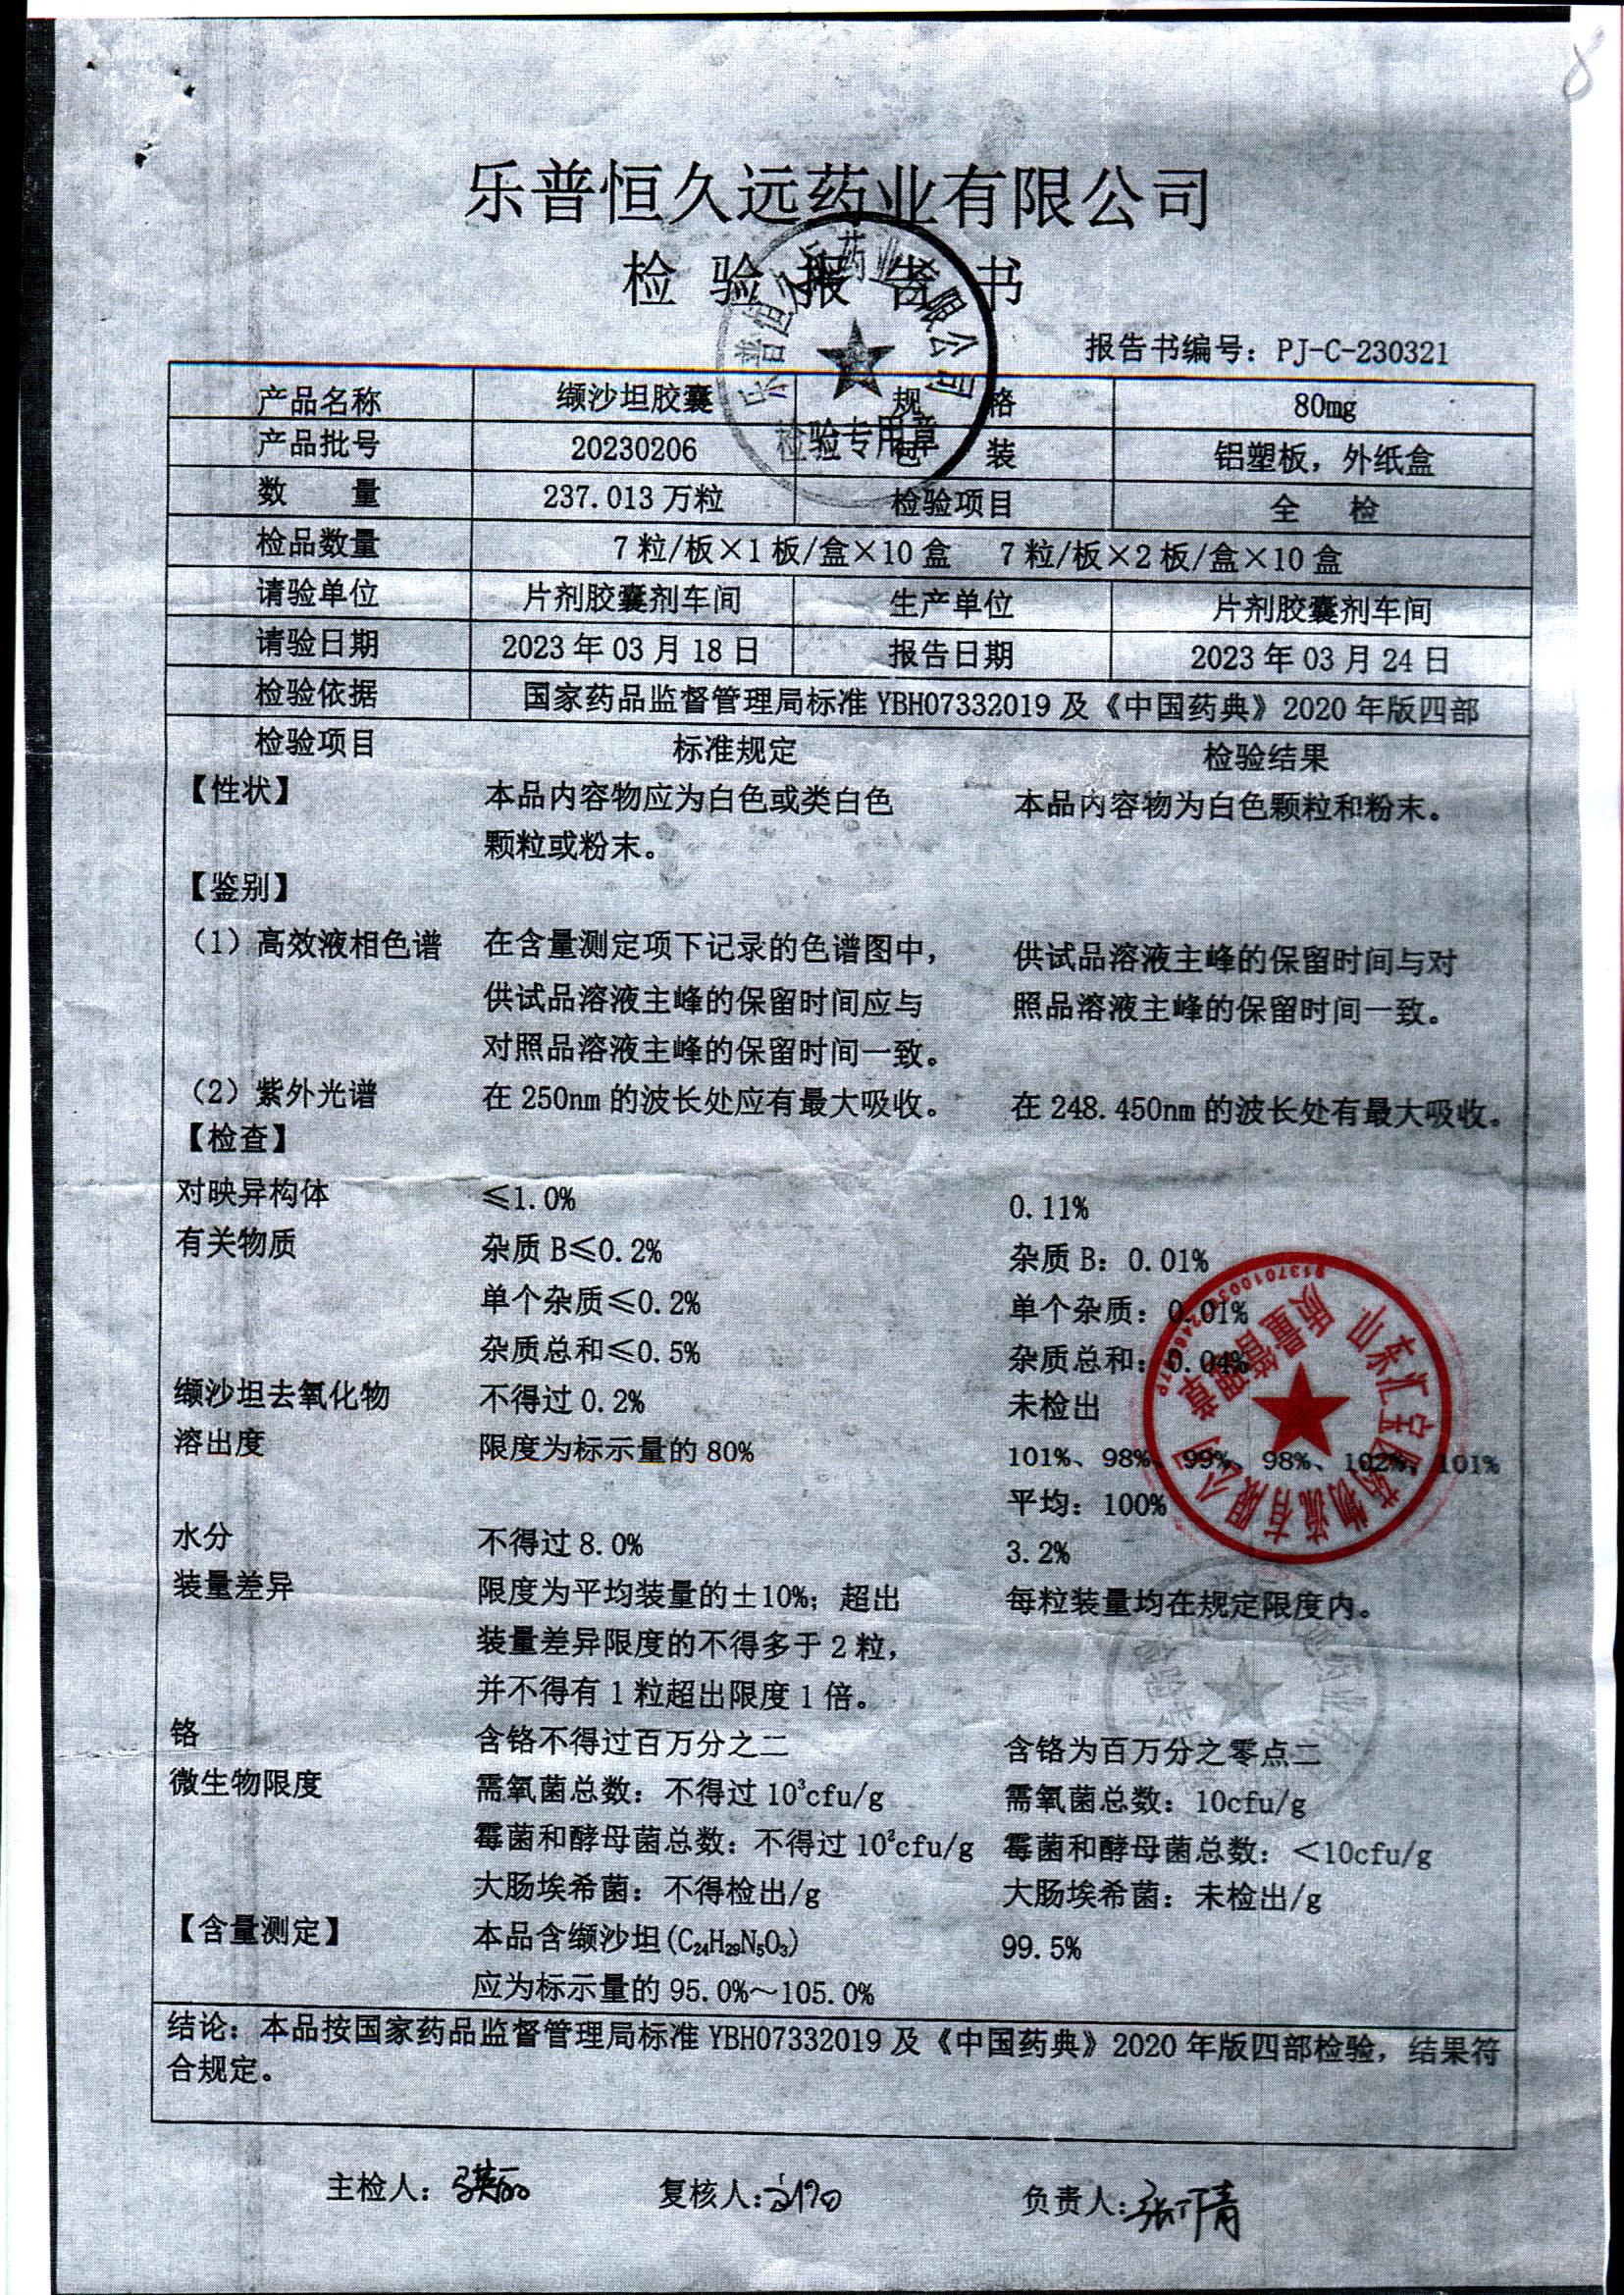 8
乐普恒久远药业有限公司
检验报告书
报告书编号：PJ-C-230321
产品名称 缬沙坦胶囊 规格 80mg
产品批号 20230206 包装 铝塑板，外纸盒
数量 237.013万粒 检验项目 全检
检品数量 7粒/板×1板/盒×10盒 7粒/板×2板/盒×10盒
请验单位 片剂胶囊剂车间 生产单位 片剂胶囊剂车间
请验日期 2023年03月18日 报告日期 2023年03月24日
检验依据 国家药品监督管理局标准YBH07332019及《中国药典》2020年版四部
检验项目 标准规定 检验结果
【性状】 本品内容物应为白色或类白色 本品内容物为白色颗粒和粉末。
颗粒或粉末。
【鉴别】
（1）高效液相色谱 在含量测定项下记录的色谱图中， 供试品溶液主峰的保留时间与对
供试品溶液主峰的保留时间应与 照品溶液主峰的保留时间一致。
对照品溶液主峰的保留时间一致。
（2）紫外光谱 在250nm的波长处应有最大吸收。 在248.450nm的波长处有最大吸收。
【检查】
对映异构体 ≤1.0% 0.11%
有关物质 杂质B≤0.2% 杂质B：0.01%
单个杂质≤0.2% 单个杂质：0.01%
杂质总和≤0.5% 杂质总和：0.04%
缬沙坦去氧化物 不得过0.2% 未检出
溶出度 限度为标示量的80% 101%、98%、99%、98%、102%、101%
平均：100%
水分 不得过8.0% 3.2%
装量差异 限度为平均装量的±10%；超出 每粒装量均在规定限度内。
装量差异限度的不得多于2粒，
并不得有1粒超出限度1倍。
铬 含铬不得过百万分之二 含铬为百万分之零点二
微生物限度 需氧菌总数：不得过10³cfu/g 需氧菌总数：10cfu/g
霉菌和酵母菌总数：不得过10²cfu/g 霉菌和酵母菌总数：＜10cfu/g
大肠埃希菌：不得检出/g 大肠埃希菌：未检出/g
【含量测定】 本品含缬沙坦(C₂₄H₂₉N₅O₃) 99.5%
应为标示量的95.0%～105.0%
结论：本品按国家药品监督管理局标准YBH07332019及《中国药典》2020年版四部检验，结果符
合规定。
主检人： 复核人： 负责人：
乐普恒久远药业有限公司
检验专用章
山东汇宝医药物流有限公司
质量管理章